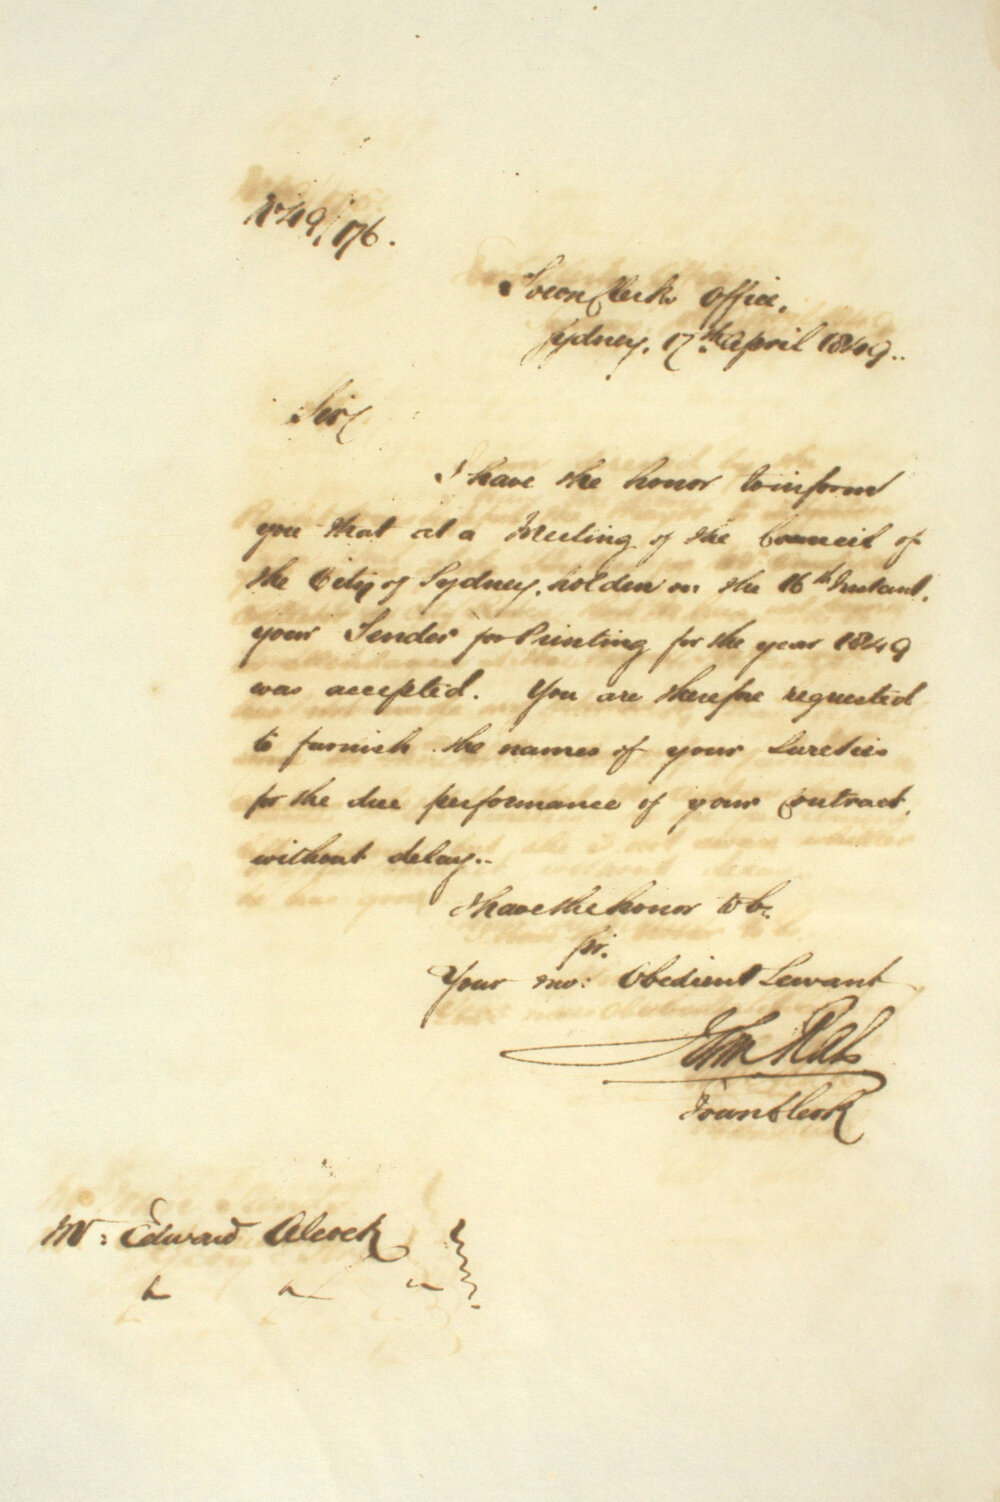 No 49/176.
Town Clerks Office,
Sydney, 17th April 1849.
Sir,
I have the honor to inform
you that at a Meeting of the Council of
the City of Sydney, holden on the 16th Instant,
your Tender for Printing for the year 1849
was accepted. You are therefore requested
to furnish the names of your Sureties
for the due performance of your Contract,
without delay.
I have the honor to be,
Sir,
Your mo: Obedient Servant
John Rae
Town Clerk
Mr: Edward Alcock